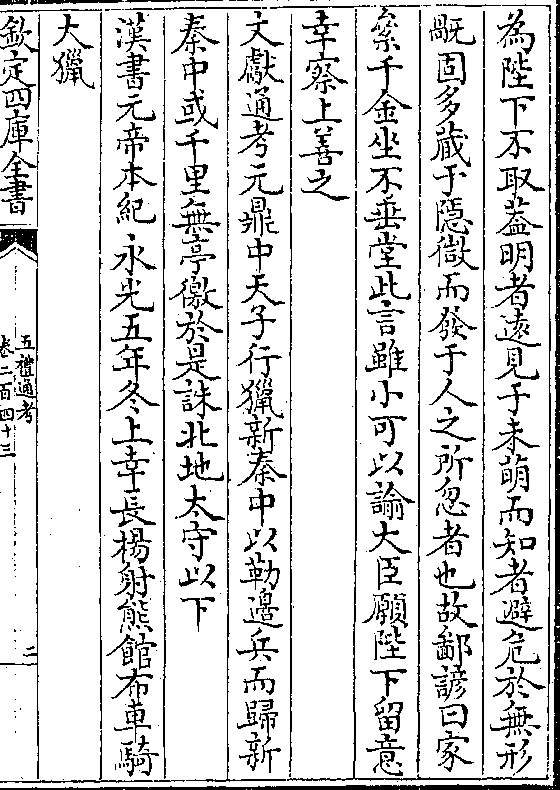 為陛下不取葢明者遠見于未萌而知者避危於無形
旤固多藏于隠微而發于人之所忽者也故鄙諺曰家
絫千金坐不垂堂此言雖小可以諭大臣願陛下留意
幸察上善之
文獻通考元鼎中天子行獵新秦中以勒邉兵而歸新
秦中或千里無亭徼於是誅北地太守以下
漢書元帝本紀永光五年冬上幸長楊射熊館布車騎
大獵
欽定四庫全書
五禮通考
卷二百四十三
二